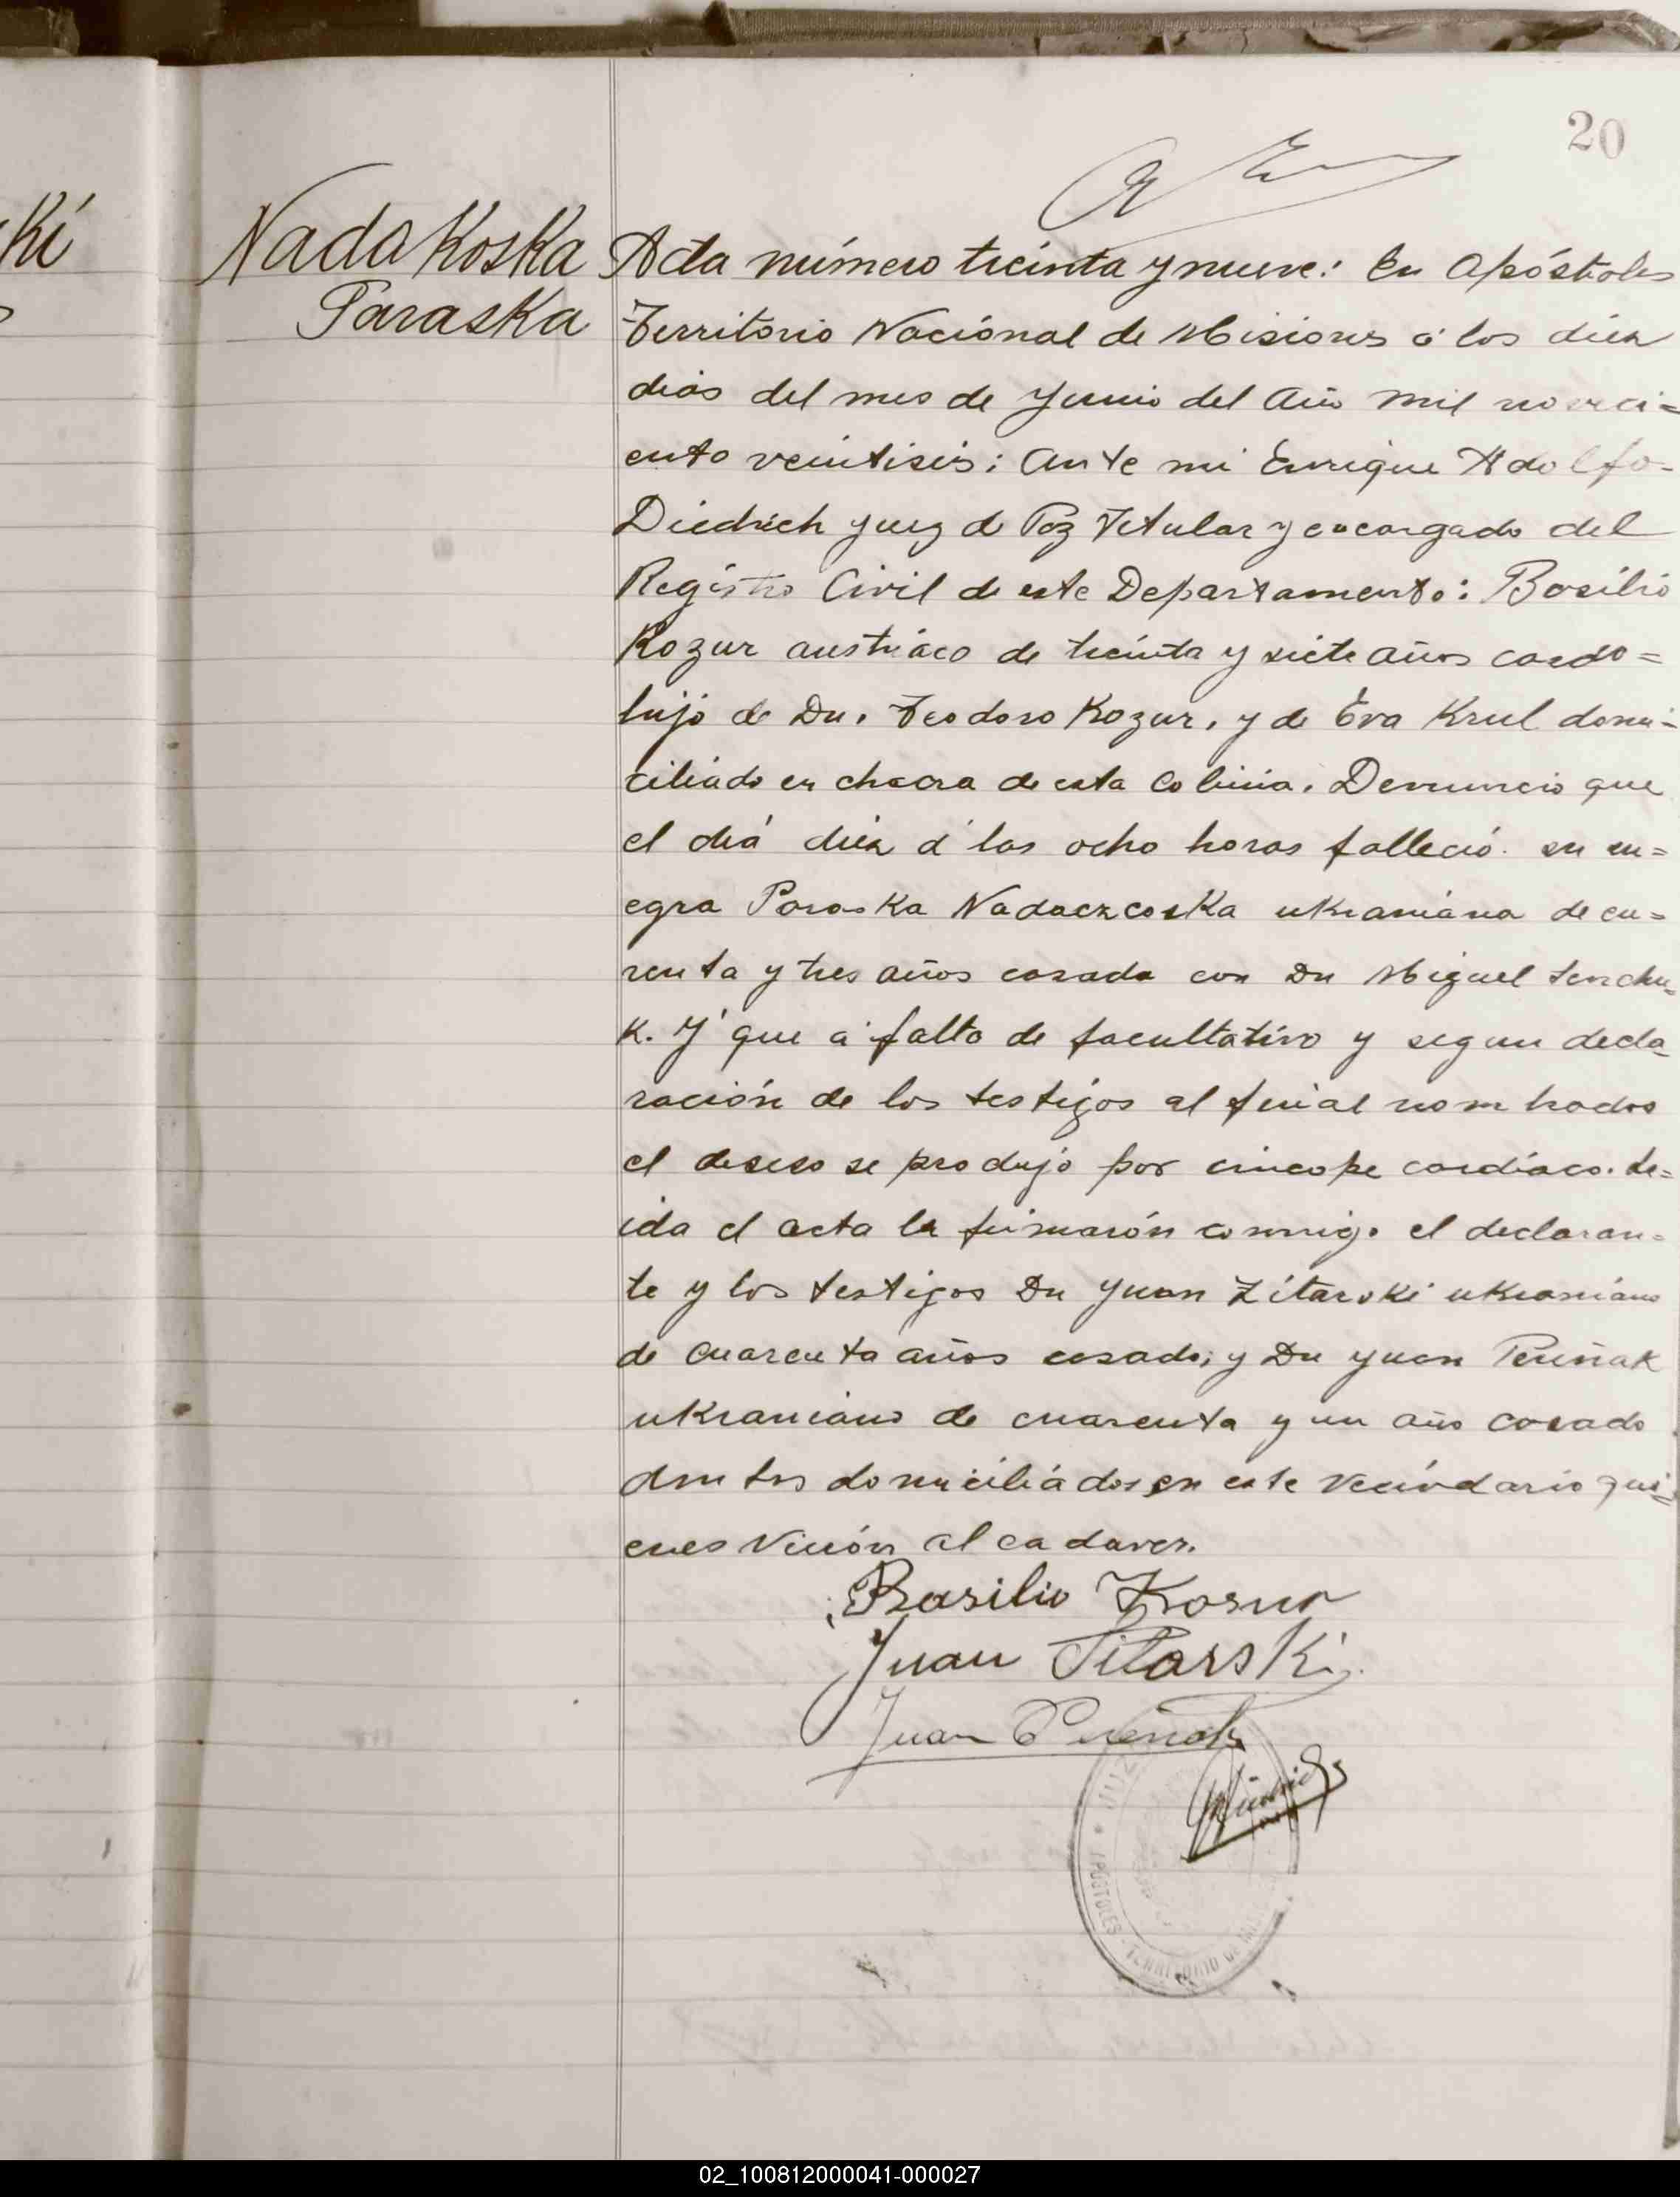 20
Ki
Nada Koska
Paraska
Acta número treinta y nueve: En Apóstoles
Territorio Nacional de Misiones á los diez
dias del mes de Junio del Año mil noveci=
ento veintiseis: Ante mi Enrique Adolfo
Diedrich Juez d Paz Titular y encargado del
Registro Civil de este Departamento: Basilio
Kozur austriaco de treinta y siete años casado=
hijo de Dn. Teodoro Kozur, y de Eva Krul domi=
ciliado en chacra de esta Colinia. Denuncio que
el diá diéz á las ocho horas falleció su su=
egra Paraska Nadaczcoska ukraniana de cu=
renta y tres años casada con Dn Miguel Senchu=
k. Y que a falta de facultativo y segun decla
ración de los testigos al final nombrados
el deseso se produjo por cincope cardiaco. Le=
ida el acta la firmarón conmigo el declaran=
te y los testigos Dn Juan Zitarski ukraniano
de cuarenta años casado; y Dn Juan Peuñak
ukraniano de cuarenta y un año casado
domiciliádos en este Vecindario qui=
enes Vierón al cadaver.
Basilio Kosur
Juan Sitarski
Juan
APOSTOLES - TERRITORIO DE
02_100812000041-000027